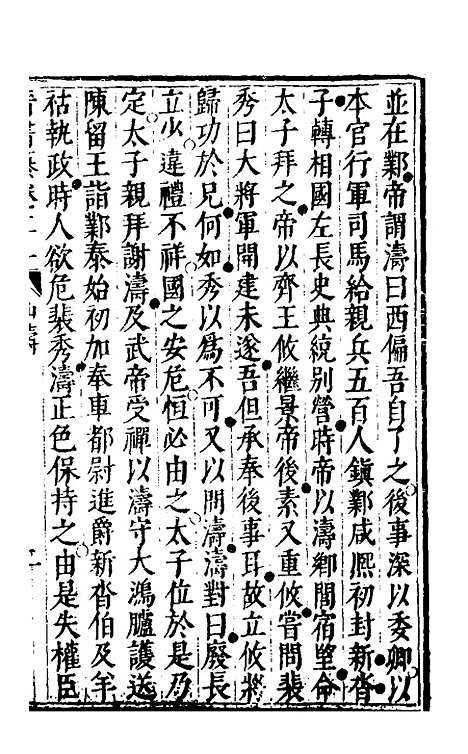 並在鄴帝謂濤曰西偏吾自了之後事深以委卿以
本官行軍司馬給親兵五百人鎮鄴咸熙初封新沓
子轉相國左長史典統別營時帝以濤鄉閭宿望命
太子拜之帝以齊王攸繼景帝後素又重攸嘗問裴
秀曰大將軍開建未遂吾但承奉後事耳故立攸將
歸功於兄何如秀以爲不可又以問濤濤對曰廢長
立少違禮不祥國之安危恒必由之太子位於是乃
定太子親拜謝濤及武帝受禪以濤守大鴻臚護送
陳留王詣鄴泰始初加奉車都尉進爵新沓伯及羊
祜執政時人欲危裴秀濤正色保持之由是失權臣
山濤